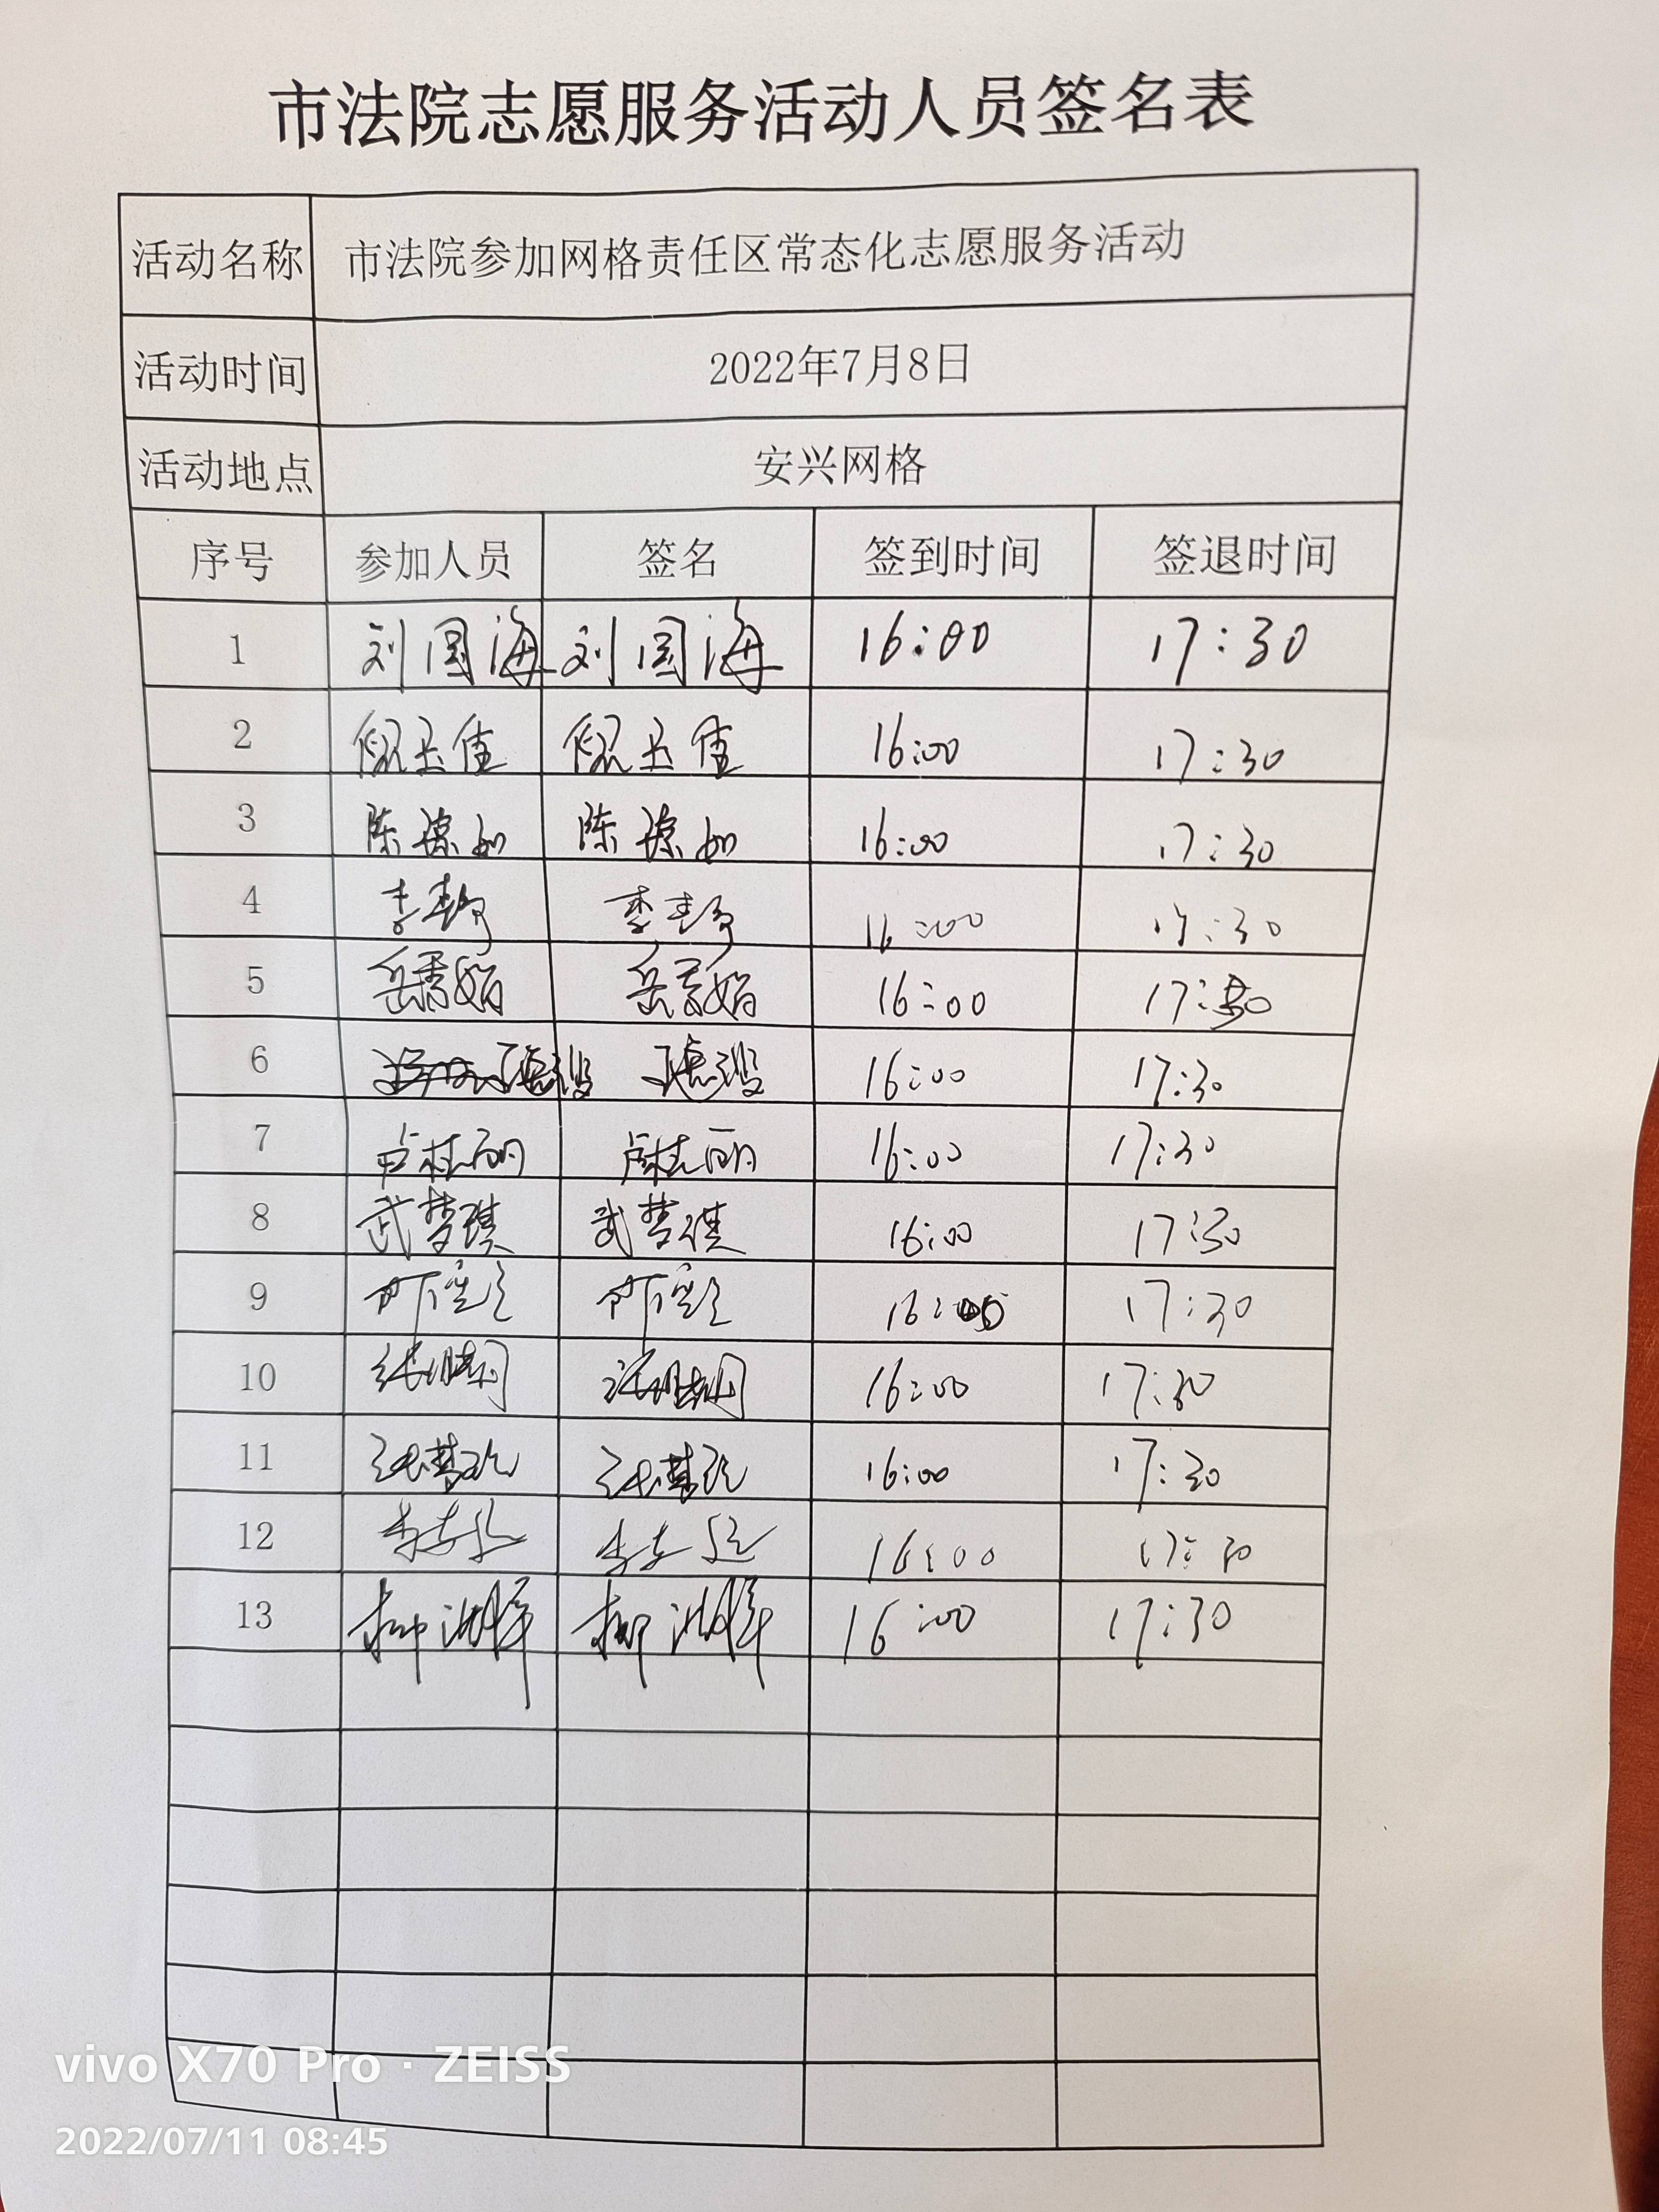 市法院志愿服务活动人员签名表
活动名称 市法院参加网格责任区常态化志愿服务活动
活动时间 2022年7月8日
活动地点 安兴网格
序号 参加人员 签名 签到时间 签退时间
1 刘国海 刘国海 16:00 17:30
2 倪玉佳 倪玉佳 16:00 17:30
3 陈琼如 陈琼如 16:00 17:30
4 李静 李静 16:00 17:30
5 岳秀娟 岳秀娟 16:00 17:30
6 16:00 17:30
7 卢桂丽 卢桂丽 16:00 17:30
8 武梦琪 武梦琪 16:00 17:30
9 16:05 17:30
10 16:00 17:30
11 16:00 17:30
12 16:00 17:30
13 16:00 17:30
vivo X70 Pro · ZEISS
2022/07/11 08:45